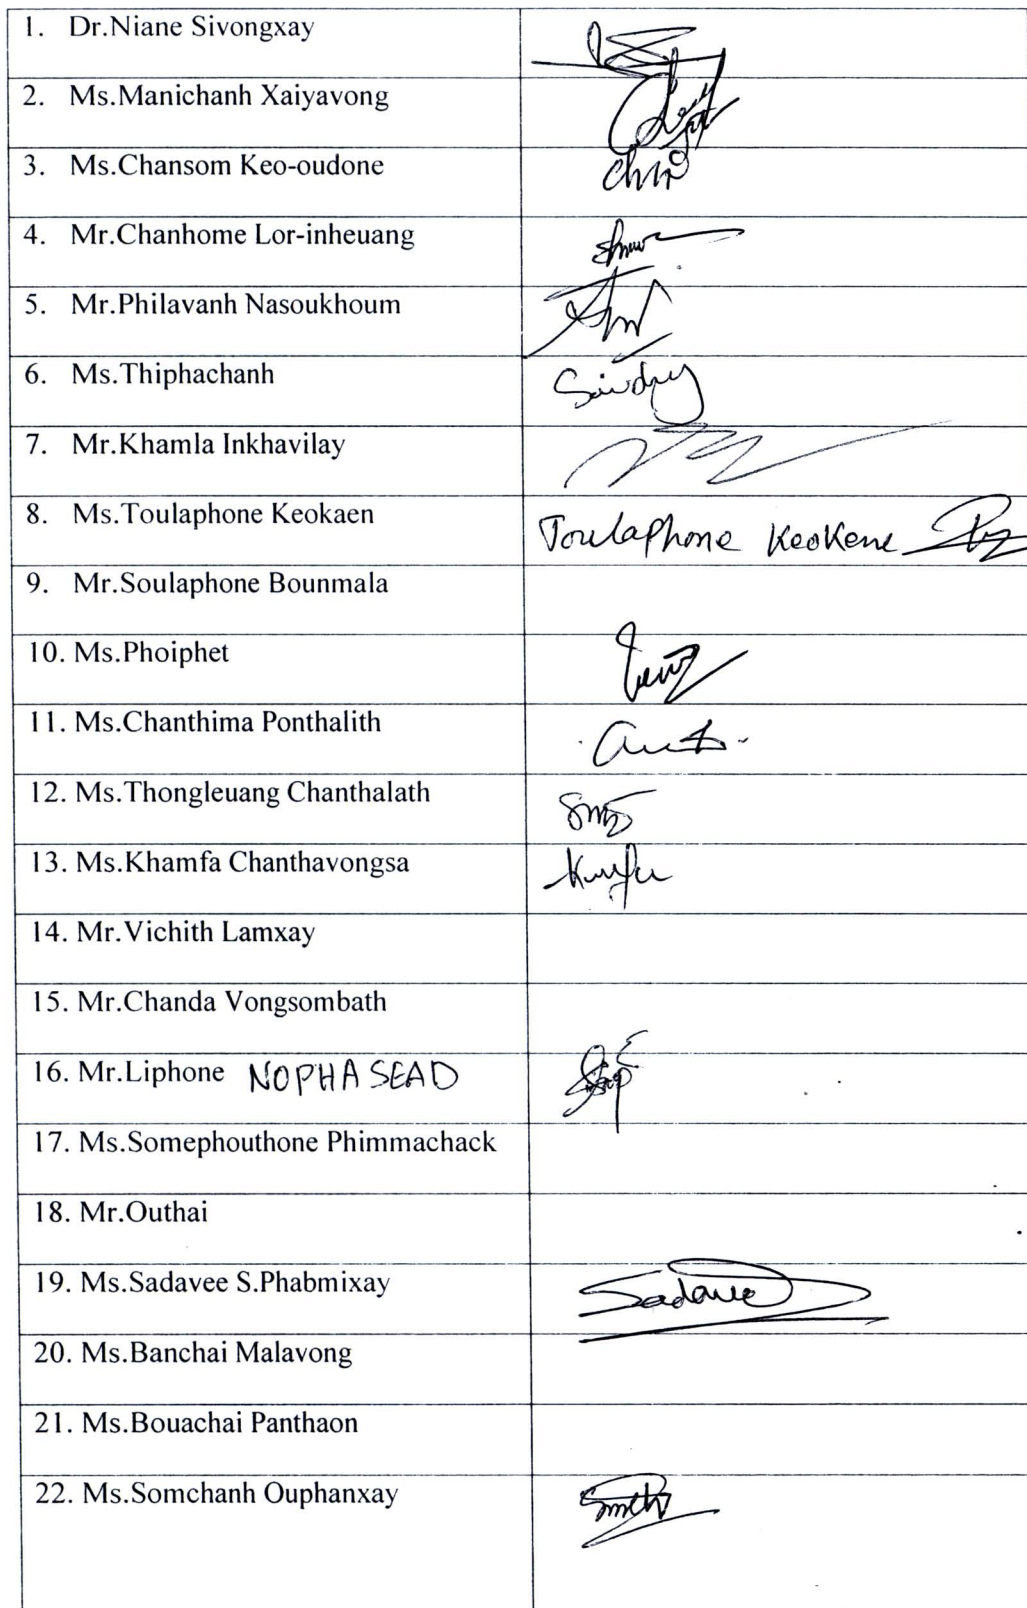 1. Dr.Niane Sivongxay
2. Ms.Manichanh Xaiyavong
3. Ms.Chansom Keo-oudone
4. Mr.Chanhome Lor-inheuang
5. Mr.Philavanh Nasoukhoum
6. Ms.Thiphachanh
7. Mr.Khamla Inkhavilay
8. Ms.Toulaphone Keokaen Toulaphone Keokene
9. Mr.Soulaphone Bounmala
10. Ms.Phoiphet
11. Ms.Chanthima Ponthalith
12. Ms.Thongleuang Chanthalath
13. Ms.Khamfa Chanthavongsa
14. Mr.Vichith Lamxay
15. Mr.Chanda Vongsombath
16. Mr.Liphone NOPHASEAD
17. Ms.Somephouthone Phimmachack
18. Mr.Outhai
19. Ms.Sadavee S.Phabmixay Sadavee
20. Ms.Banchai Malavong
21. Ms.Bouachai Panthaon
22. Ms.Somchanh Ouphanxay